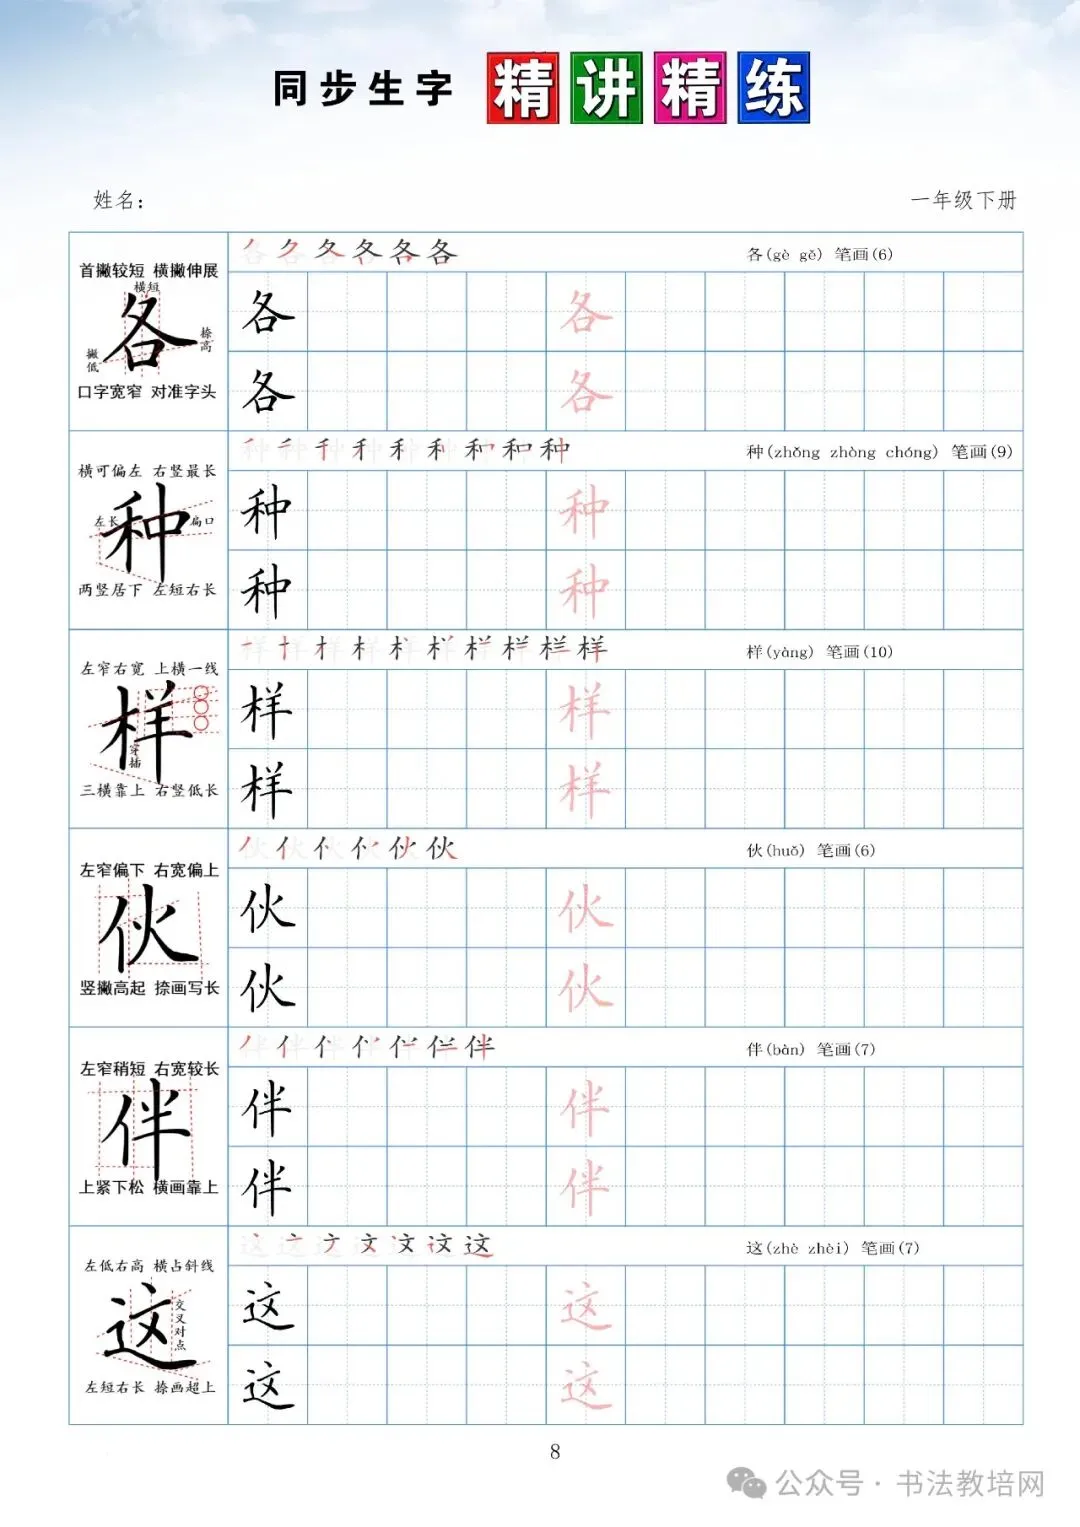 同步生字 精讲精练
姓名：
一年级下册
首撇较短 横撇伸展
横短
各
撇低
捺高
口字宽窄 对准字头
各(gè gě) 笔画(6)
各 各
各 各
横可偏左 右竖最长
左长
种
扁口
两竖居下 左短右长
种(zhǒng zhòng chóng) 笔画(9)
种 种
种 种
左窄右宽 上横一线
样
穿插
三横靠上 右竖低长
样(yàng) 笔画(10)
样 样
样 样
左窄偏下 右宽偏上
伙
竖撇高起 捺画写长
伙(huǒ) 笔画(6)
伙 伙
伙 伙
左窄稍短 右宽较长
伴
上紧下松 横画靠上
伴(bàn) 笔画(7)
伴 伴
伴 伴
左低右高 横占斜线
这
交叉对点
左短右长 捺画超上
这(zhè zhèi) 笔画(7)
这 这
这 这
8
公众号·书法教培网